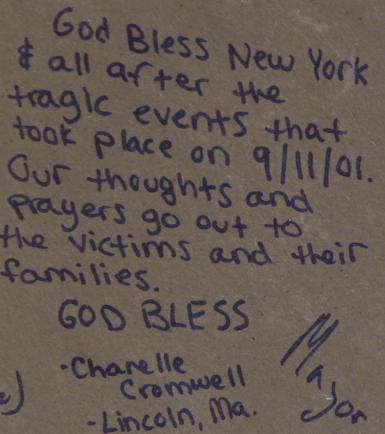 God Bless New York
& all after the
tragic events that
took place on 9/11/01.
Our thoughts and
prayers go out to
the victims and their
families.
GOD BLESS
-Charelle
Cromwell
-Lincoln, Ma.
Major